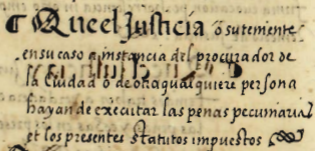 Que el Justicia o su teniente
en su caso a instancia del procurador de
la Ciudad o de otra qualquiere persona
hayan de executar las penas pecuniarias
et los presentes statutos impuestos